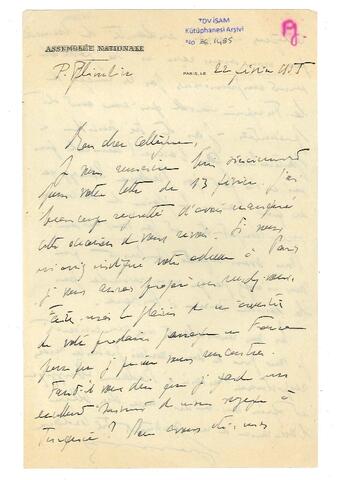 TDV İSAM
Kütüphanesi Arşivi
No 36.1485
ASSEMBLÉE NATIONALE
P. Pflimlin
PARIS, LE 22 février 1955
Mon cher collègue,
Je vous remercie bien sincèrement
pour votre lettre du 13 février. J'ai
beaucoup regretté d'avoir manqué
cette occasion de vous revoir. Si vous
m'aviez indiqué votre adresse à Paris
je vous aurais proposé un rendez-vous.
Faites-moi le plaisir de m'avertir
de votre prochain passage en France
pour que je puisse vous rencontrer.
Faut-il vous dire que je garde un
excellent souvenir de mon voyage à
? Nous avons